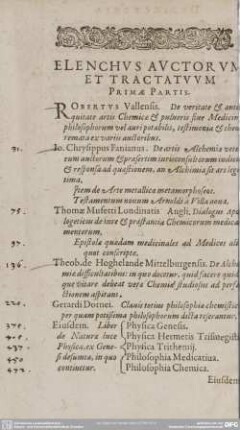 ELENCHVS AVCTORVM
ET TRACTATVVM
PRIMÆ PARTIS.
ROBERTVS Vallensis. De veritate & anti
quitate artis Chemicæ & pulveris sive Medicin
philosophorum vel auri potabilis, testimonia & theo
remata ex variis auctoribus.
31. Jo. Chrysippus Fanianus. De artis Alchemiæ vete
rum auctorum & præsertim iurisconsultorum iudicia
& responsa ad quæstionem, an Alchimia sit ars legi
tima.
Item de Arte metallicæ metamorphoseos.
Testamentum novum Arnoldi à Villa nova.
75. Thomæ Mufetti Londinatis Angli, Dialogus Apo
logeticus de iure & præstantia Chemicorum medica
mentorum.
97. Epistolæ quædam medicinales ad Medicos ali
quot conscriptæ.
136. Theob. de Hoghelande Mittelburgensis. De Alche
miæ difficultatibus: in quo docetur, quid scire quid
que vitare debeat veræ Chemiæ studiosus ad perfe
ctionem aspirans.
220. Gerardi Dornei. Clavis totius philosophiæ chemistic
per quam potissima philosophorum dicta reserantur.
Eiusdem. Liber
de Natura luce
Physica, ex Gene
si desumta, in quo
continetur.
Physica Genesis.
Physica Hermetis Trismegisti
437. Physica Trithemij.
450 Philosophia Meditativa.
472. Philosophia Chemica.
Eiusdem